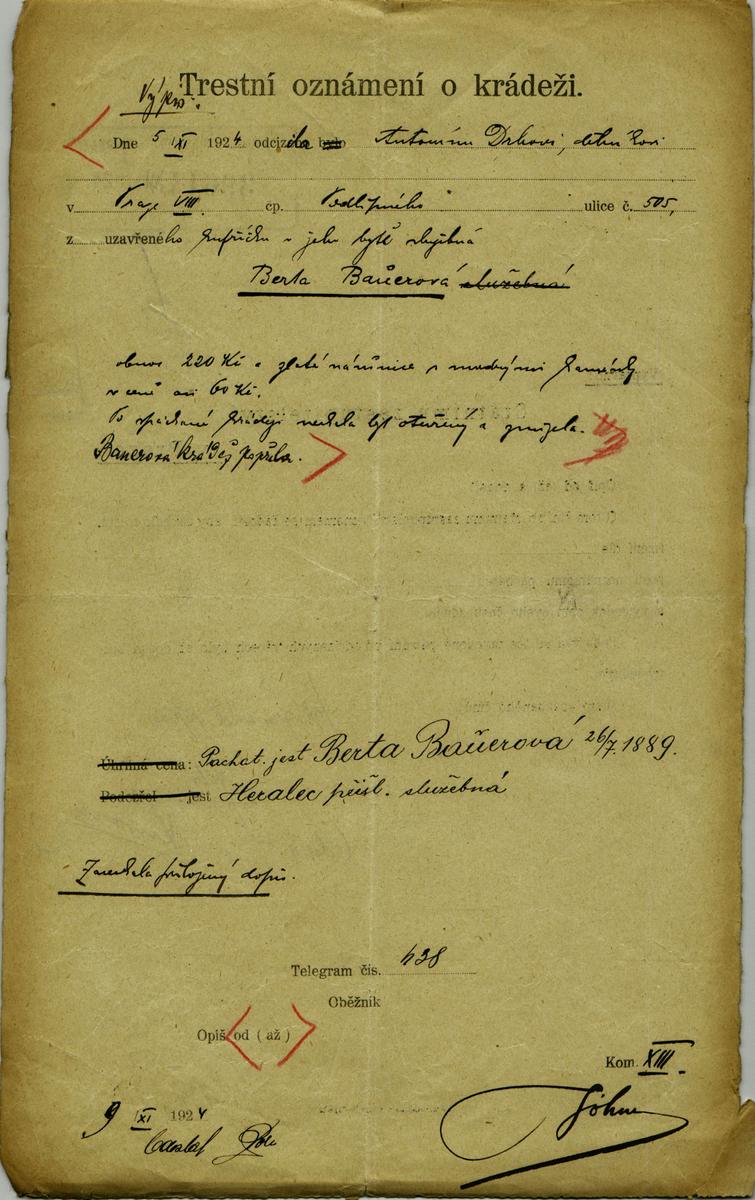 Trestní oznámení o krádeži.
Výpis.
Dne 5 XI 1924 odcizila bylo Antonínu Drbovi,
v Praze VIII. čp. Podlipného ulice č. 505,
z uzavřeného kufříku v jeho bytě služebná
Berta Bauerová služebná
obnos 220 Kč a zlaté náušnice s modrými kameny
v ceně asi 60 Kč.
Po spáchané krádeži nechala byt otevřený a zmizela.
Bauerová krádež popřela.
Úhrnná cena: Pachat. jest Berta Bauerová 26/7. 1889.
Podezřel jest Heralec přísl. služebná
Zanechala přiložený dopis.
Telegram čís. 438
Oběžník
Opiš od ( až )
Kom. XIII.
9 XI 1924